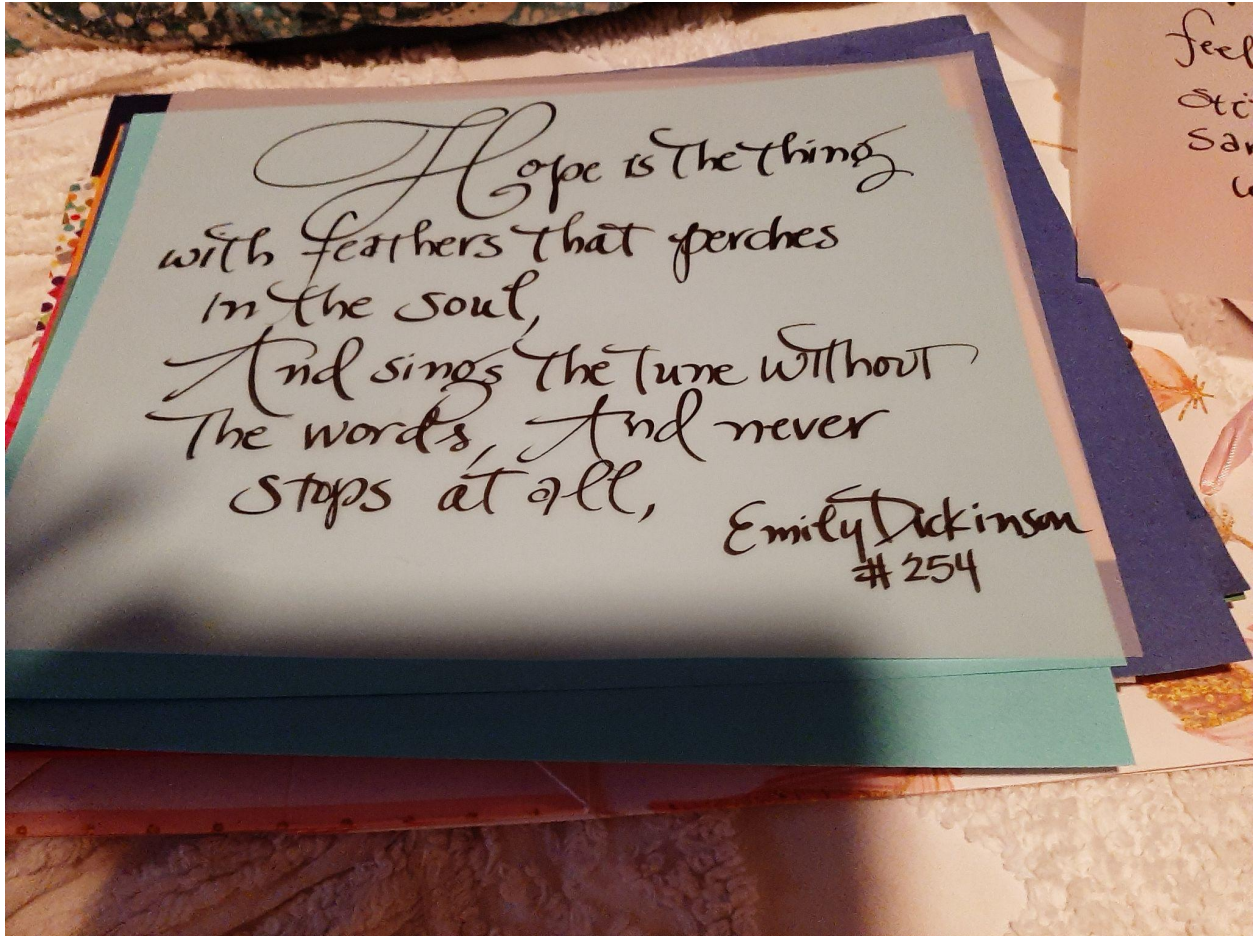 Hope is the thing
with feathers that perches
in the soul,
And sings the tune without
The words, And never
stops at all,
Emily Dickinson
# 254
feel